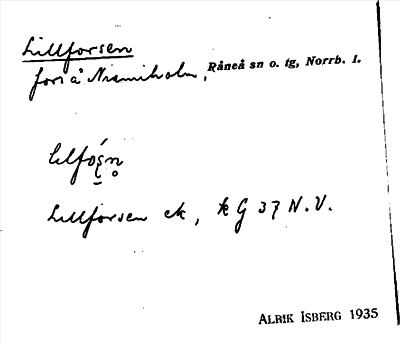 Lillforsen
fors å Niemiholm, Råneå sn o. tg, Norrb. l.
Lillforsen ek, k G 37 N.V.
ALRIK ISBERG 1935